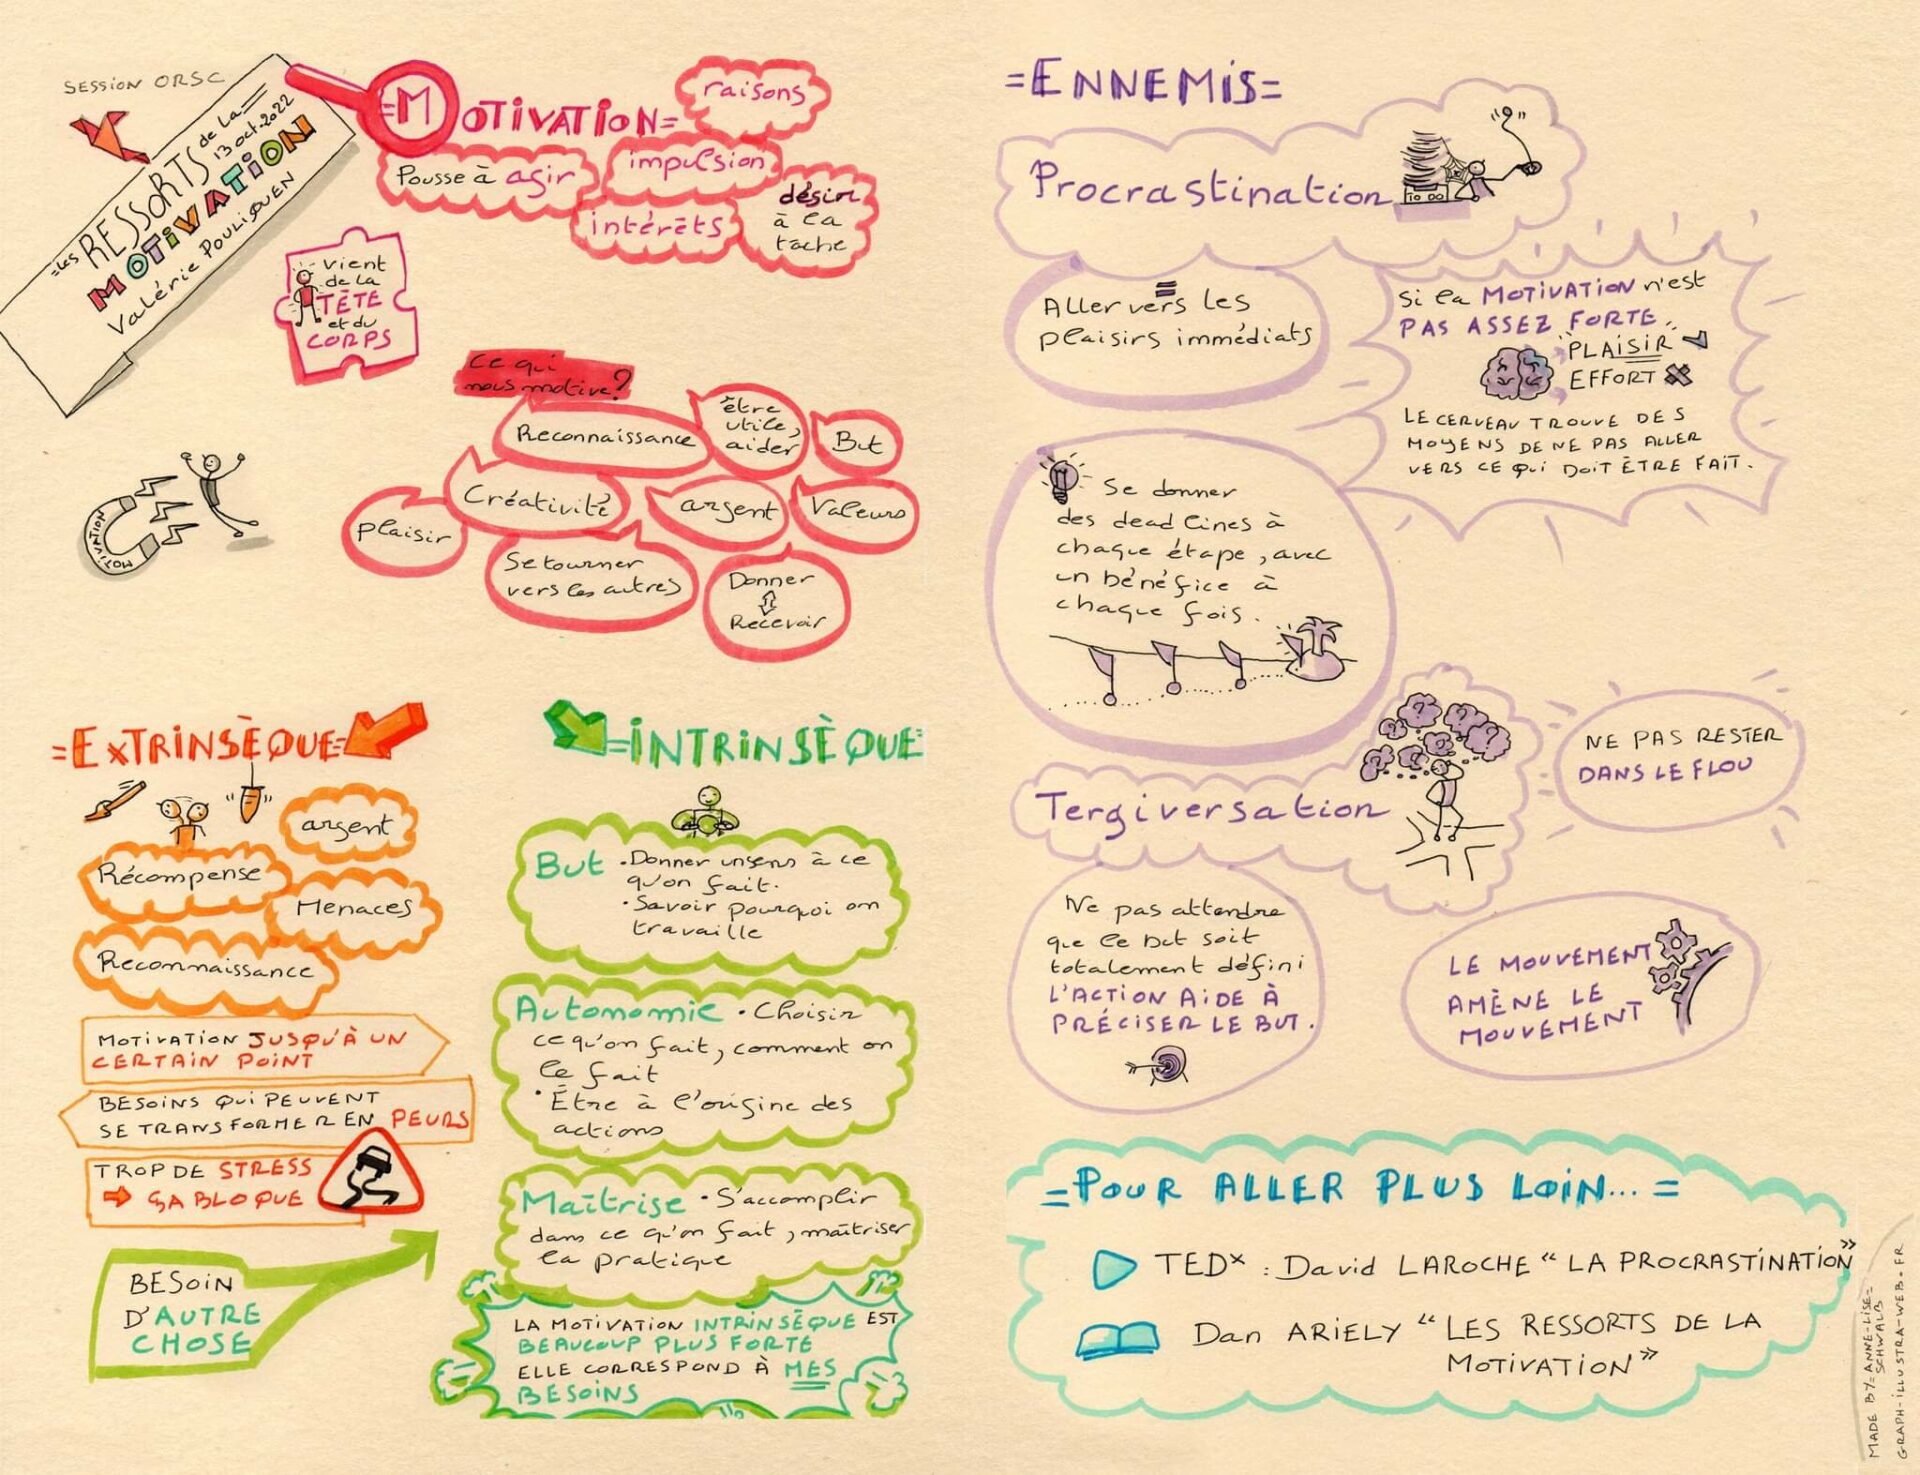 SESSION ORSC
=Les RESSORTS de la=
13 oct. 2022
MOTIVATION
Valérie POULIQUEN
=MOTIVATION=
raisons
Pousse à agir
impulsion
intérêts
désir
à la
tâche
vient
de la
TÊTE
et du
CORPS
MOTIVATION
Ce qui
nous motive?
Reconnaissance
être
utile,
aider
But
Créativité
argent
Valeurs
plaisir
Se tourner
vers les autres
Donner
Recevoir
=EXTRINSÈQUE=
argent
Récompense
Menaces
Reconnaissance
MOTIVATION JUSQU'À UN
CERTAIN POINT
BESOINS QUI PEUVENT
SE TRANSFORMER EN PEURS
TROP DE STRESS
ÇA BLOQUE
BESOIN
D'AUTRE
CHOSE
=INTRINSÈQUE=
But • Donner un sens à ce
qu'on fait.
• Savoir pourquoi on
travaille
Autonomie • Choisir
ce qu'on fait, comment on
le fait
• Être à l'origine des
actions
Maîtrise • S'accomplir
dans ce qu'on fait, maîtriser
la pratique
LA MOTIVATION INTRINSÈQUE EST
BEAUCOUP PLUS FORTE
ELLE CORRESPOND À MES
BESOINS
=ENNEMIS=
Procrastination
=
Aller vers les
plaisirs immédiats
Si la MOTIVATION n'est
PAS ASSEZ FORTE.
PLAISIR
EFFORT
LE CERVEAU TROUVE DES
MOYENS DE NE PAS ALLER
VERS CE QUI DOIT ÊTRE FAIT.
Se donner
des deadlines à
chaque étape, avec
un bénéfice à
chaque fois.
Tergiversation
NE PAS RESTER
DANS LE FLOU
Ne pas attendre
que le but soit
totalement défini
L'ACTION AIDE À
PRÉCISER LE BUT.
LE MOUVEMENT
AMÈNE LE
MOUVEMENT
=POUR ALLER PLUS LOIN...=
TEDx : David LAROCHE "LA PROCRASTINATION"
Dan ARIELY "LES RESSORTS DE LA
MOTIVATION"
MADE BY=ANNE-LISE=
SCHWALB
GRAPH-ILLUSTRA-WEB.FR